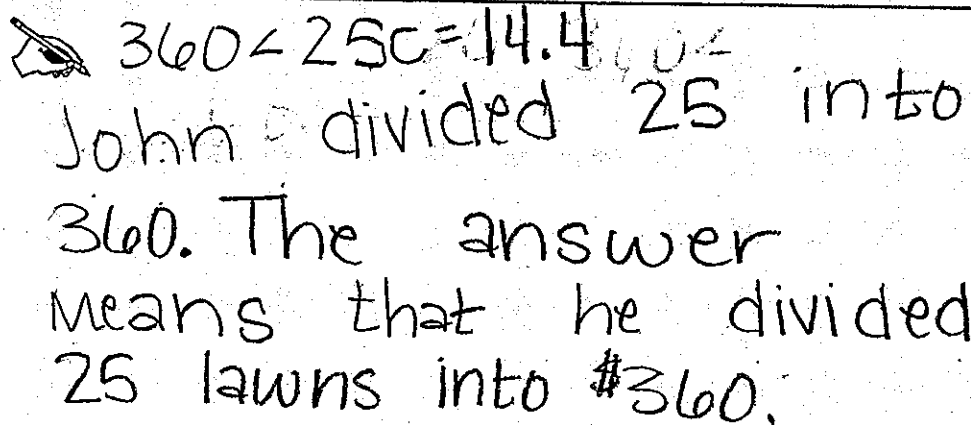 360<25c=14.4
John divided 25 into
360. The answer
means that he divided
25 lawns into #360.